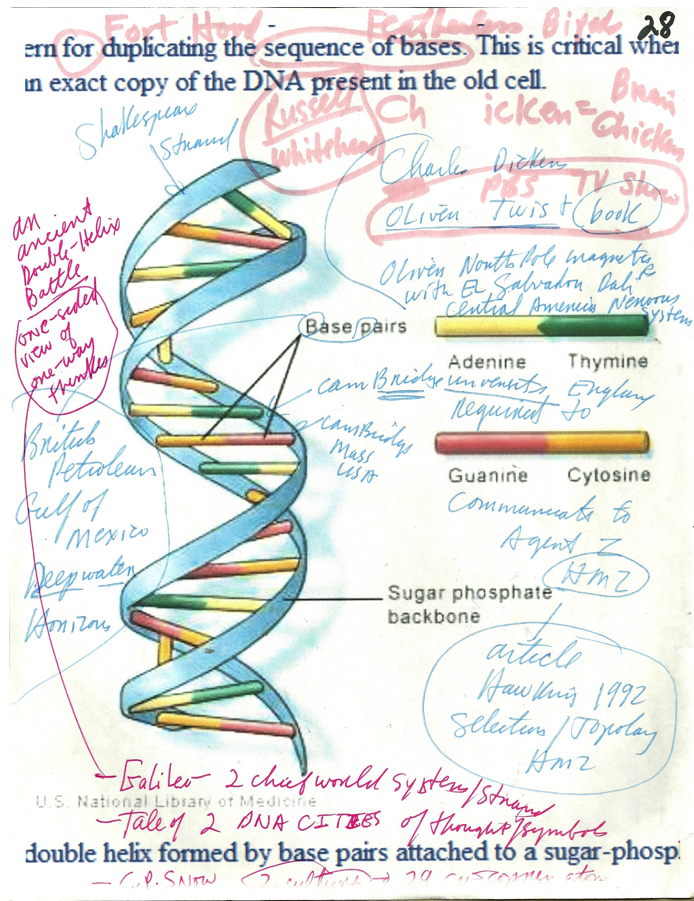 Fort Hood Featherless Birds 28
ern for duplicating the sequence of bases. This is critical when
an exact copy of the DNA present in the old cell.
Russell
Whitehead
Ch icken = Brain
Chicken
Shakespeare
Strand
Charles Dickens
PBS TV Show
Oliver Twist book
an
ancient
Double-Helix
Battle
one-sided
view of
one-way
Oliver North Pole magnetic
with El Salvador Dali
Central America Nervous
System
Base pairs
Adenine Thymine
CamBridge University England
Required to
CamBridge
Mass
USA
Guanine Cytosine
British
Petroleum
Gulf of
Mexico
Deepwater
Horizon
Communicate to
Agent Z
HMZ
Sugar phosphate
backbone
article
Hawking 1992
Selection/Topology
HMZ
- Galileo 2 chief world systems/strand
U.S. National Library of Medicine
- Tale of 2 DNA CITIES of thought/symbols
double helix formed by base pairs attached to a sugar-phosp
- C.P. Snow 2 cultures